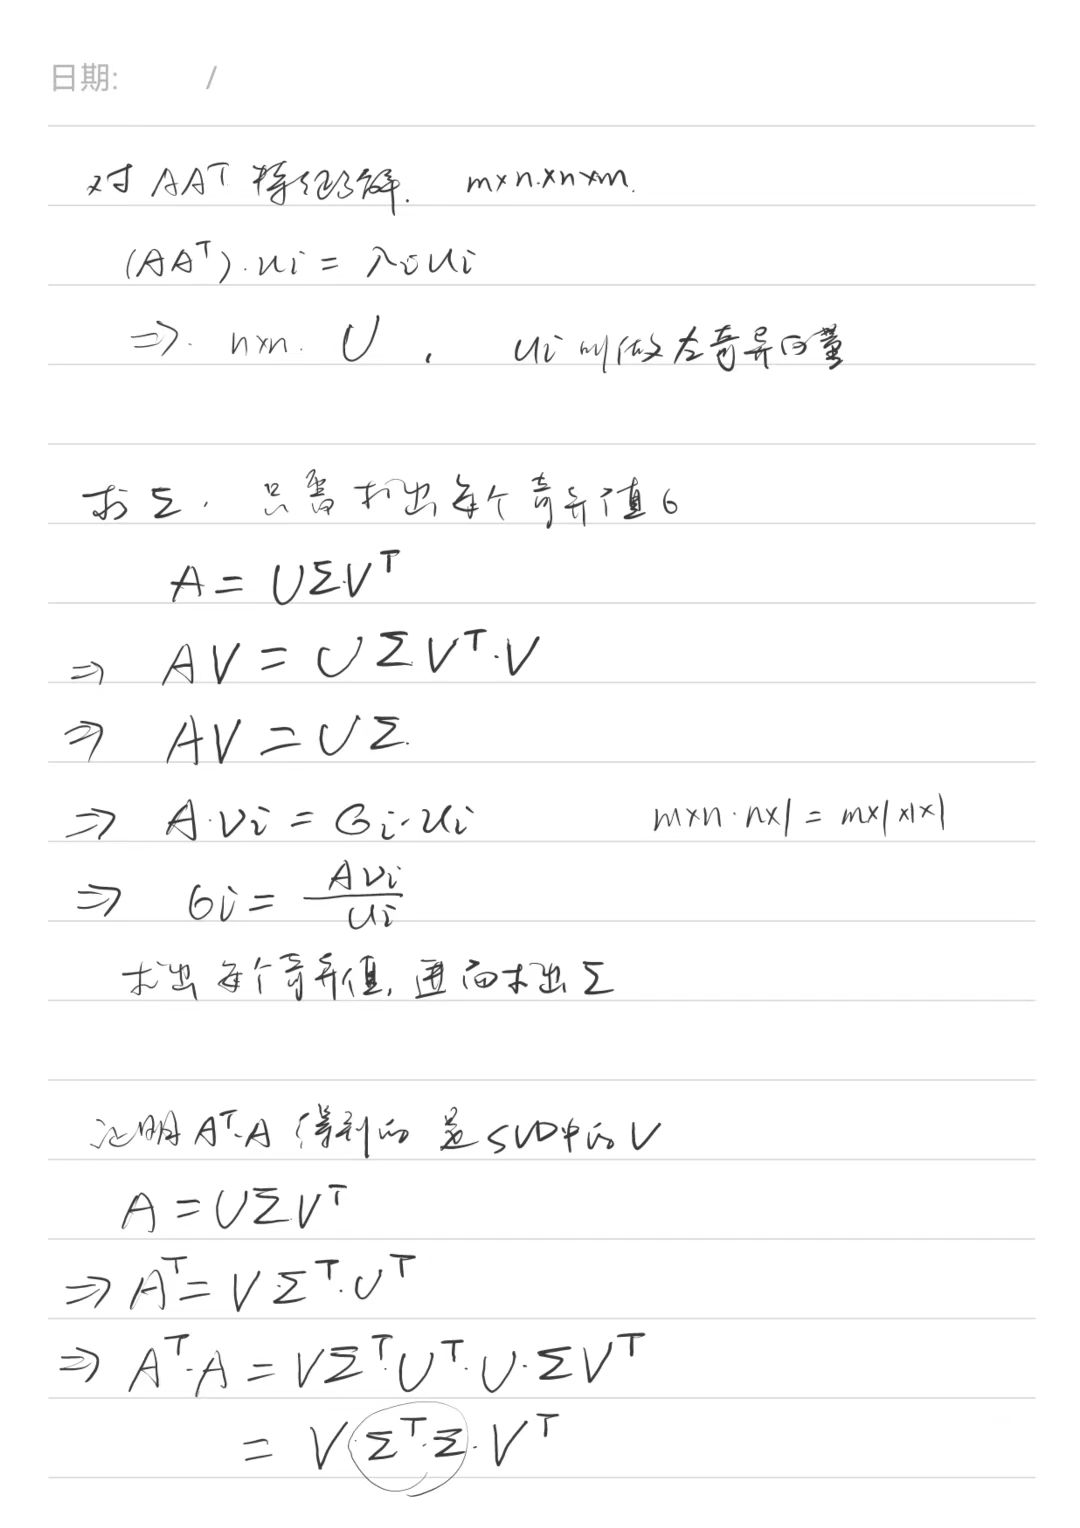 日期: /
对 AAᵀ 特征分解. m×n.×n×m.
(AAᵀ).ui = λiui
⇒. n×n. U , ui 叫做左奇异向量
求Σ, 只需求出每个奇异值σ
A = UΣVᵀ
⇒ AV = UΣVᵀ·V
⇒ AV = UΣ.
⇒ A·vi = σi·ui m×n·n×1 = m×1×1×1
⇒ σi = Avi/ui
求出每个奇异值, 进而求出Σ
证明Aᵀ·A 得到的是SVD中的V
A = UΣVᵀ
⇒ Aᵀ = VΣᵀ·Uᵀ
⇒ Aᵀ·A = VΣᵀ·Uᵀ·U·ΣVᵀ
= V·Σᵀ·Σ·Vᵀ